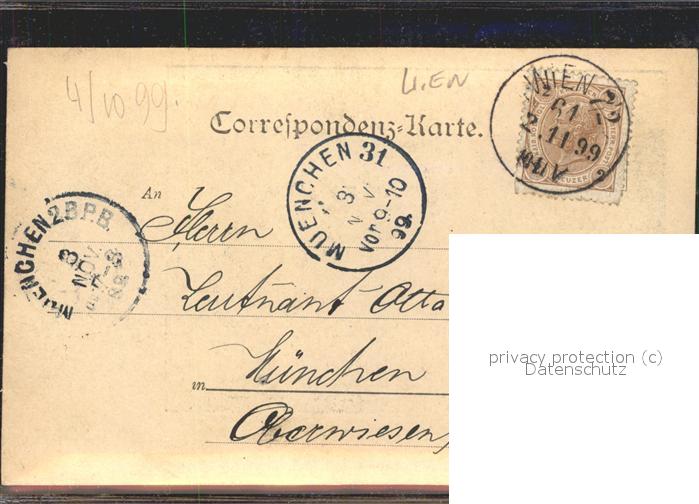 4/10 99.
WIEN
Correspondenz=Karte.
WIEN
2.11.99
KREUZER
MUENCHEN 31
3
NOV
Vor 9-10
99.
MUENCHEN 2 B.P.B.
3
NOV
An Herrn
Leutnant Otto
München
in
Oberwiesen
privacy protection (c)
Datenschutz